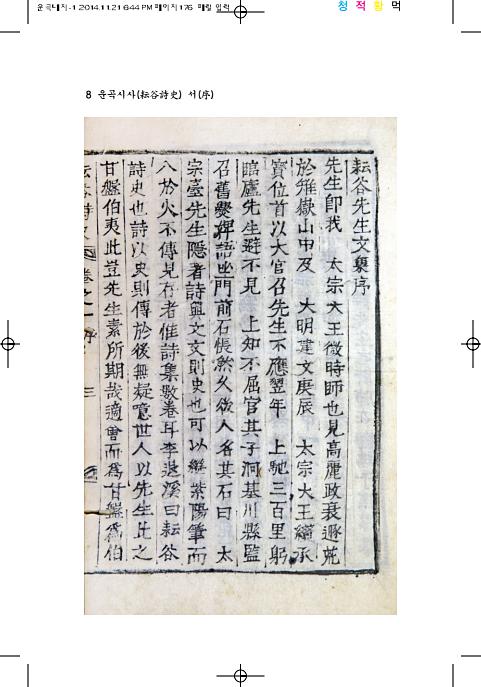 운곡시사-1 2014.11.21 6:44 PM 페이지176 매킬 입력
청 적 황 먹
8 운곡시사(耘谷詩史) 서(序)
耘谷先生文集序
先生卽我 太宗大王微時師也見高麗政衰遯荒
於雉嶽山中及 大明建文庚辰 太宗大王纘承
寶位首以大官召先生不應翌年 上馳三百里躬
臨廬先生避不見 上知不屈官其子洞基川縣監
召舊爨婢語出門前石悵然久後人名其石曰 太
宗臺先生隱者詩與文文則史也可以繼紫陽筆而
入於火不傳見存者惟詩集數卷耳李退溪曰耘谷
詩史也詩以史則傳於後無疑噫世人以先生比之
甘盤伯夷此豈先生素所期哉適會而爲甘盤爲伯
耘谷詩史 卷之一 序 三